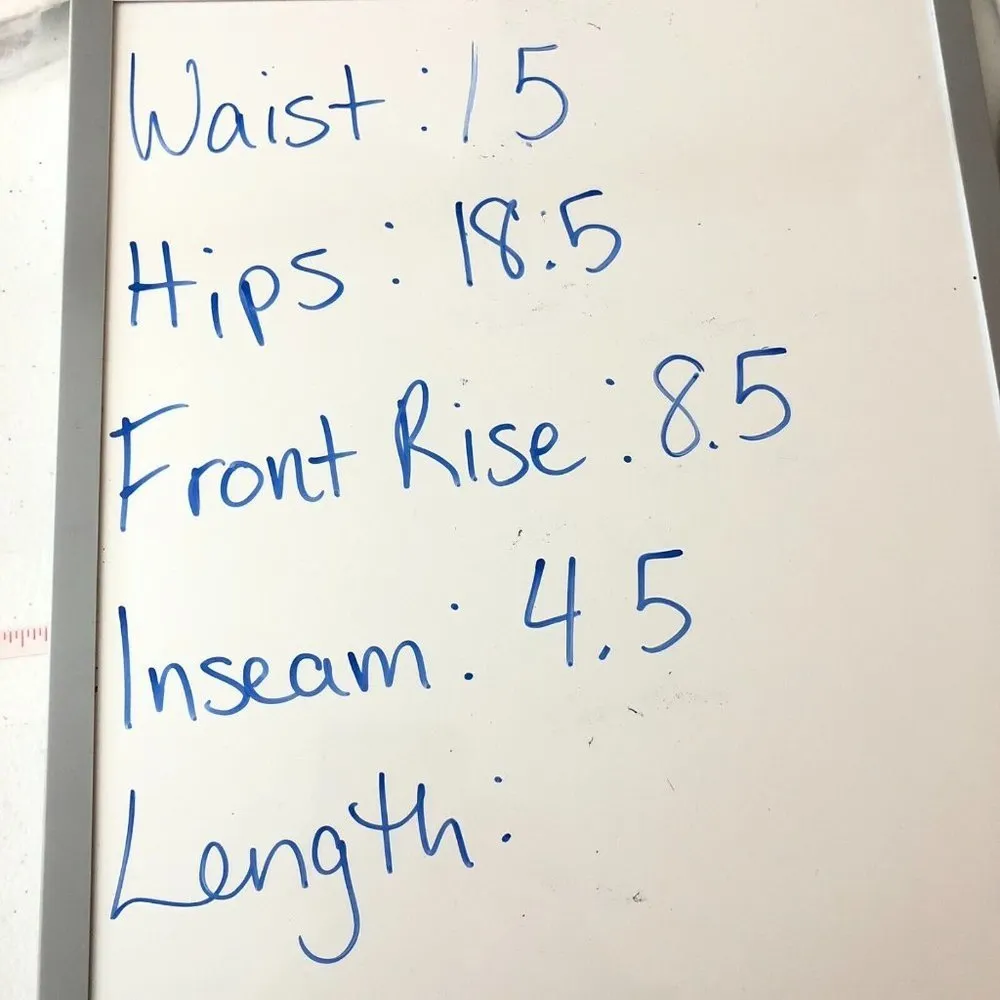 Waist : 15
Hips : 18.5
Front Rise : 8.5
Inseam : 4.5
Length :